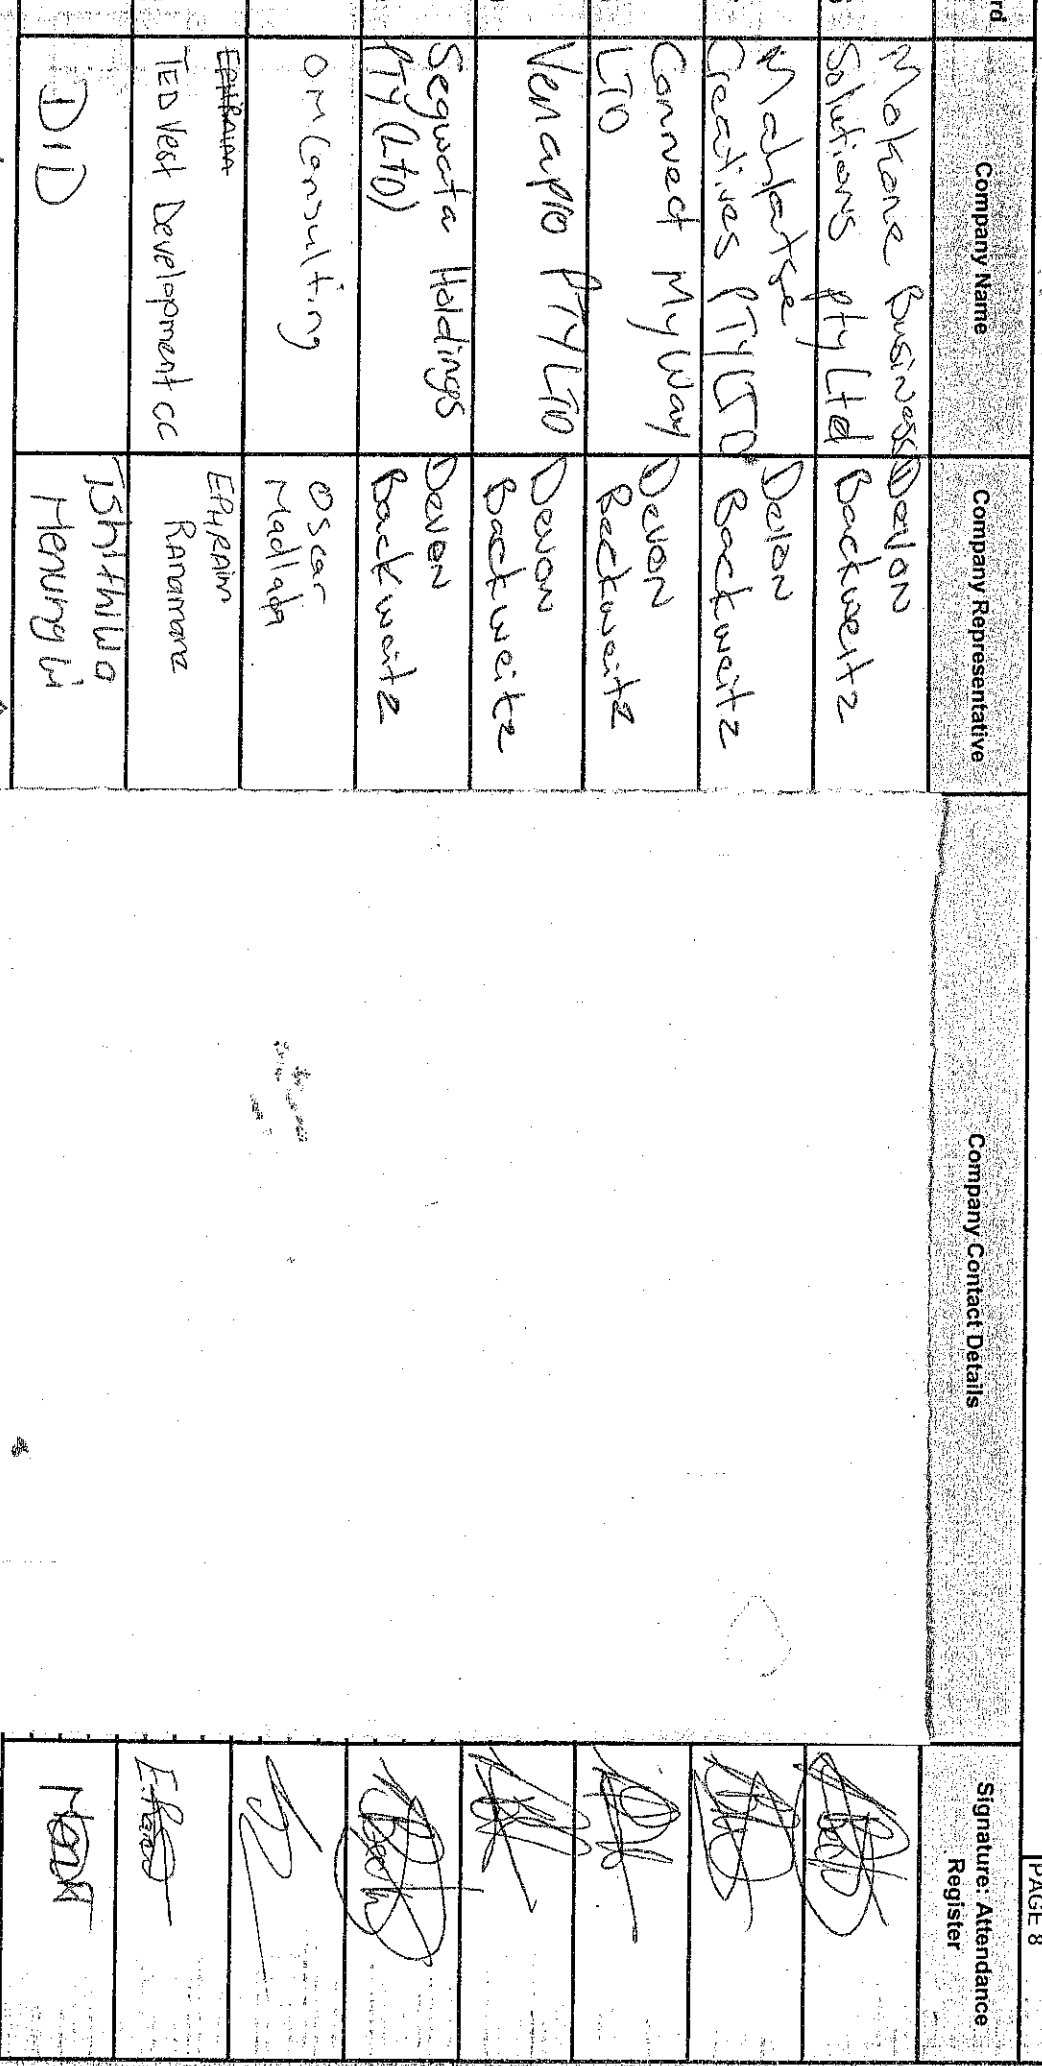 PAGE 8
rd
Company Name
Company Representative
Company Contact Details
Signature: Attendance
Register
Mokone Business
Solutions pty Ltd
Devon
Backweitz
Mahlatse
Creatives PTY LTD
Devon
Backweitz
Connect My Way
LTD
Devon
Backweitz
Venapro PTY LTD
Devon
Backweitz
Segwata Holdings
PTY (LTD)
Devon
Backweitz
OM Consulting
Oscar
TED Vest Development CC
EPHRAIM
DID